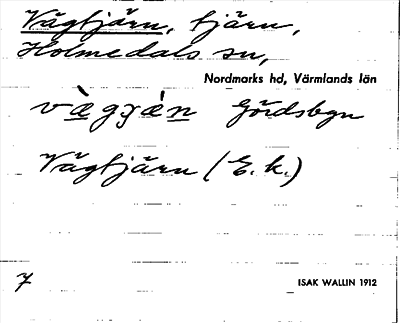 Vägtjärn, tjärn,
Holmedals sn,
Nordmarks hd, Värmlands län
Gördsbyn
Vägtjärn (E. k.)
7
ISAK WALLIN 1912